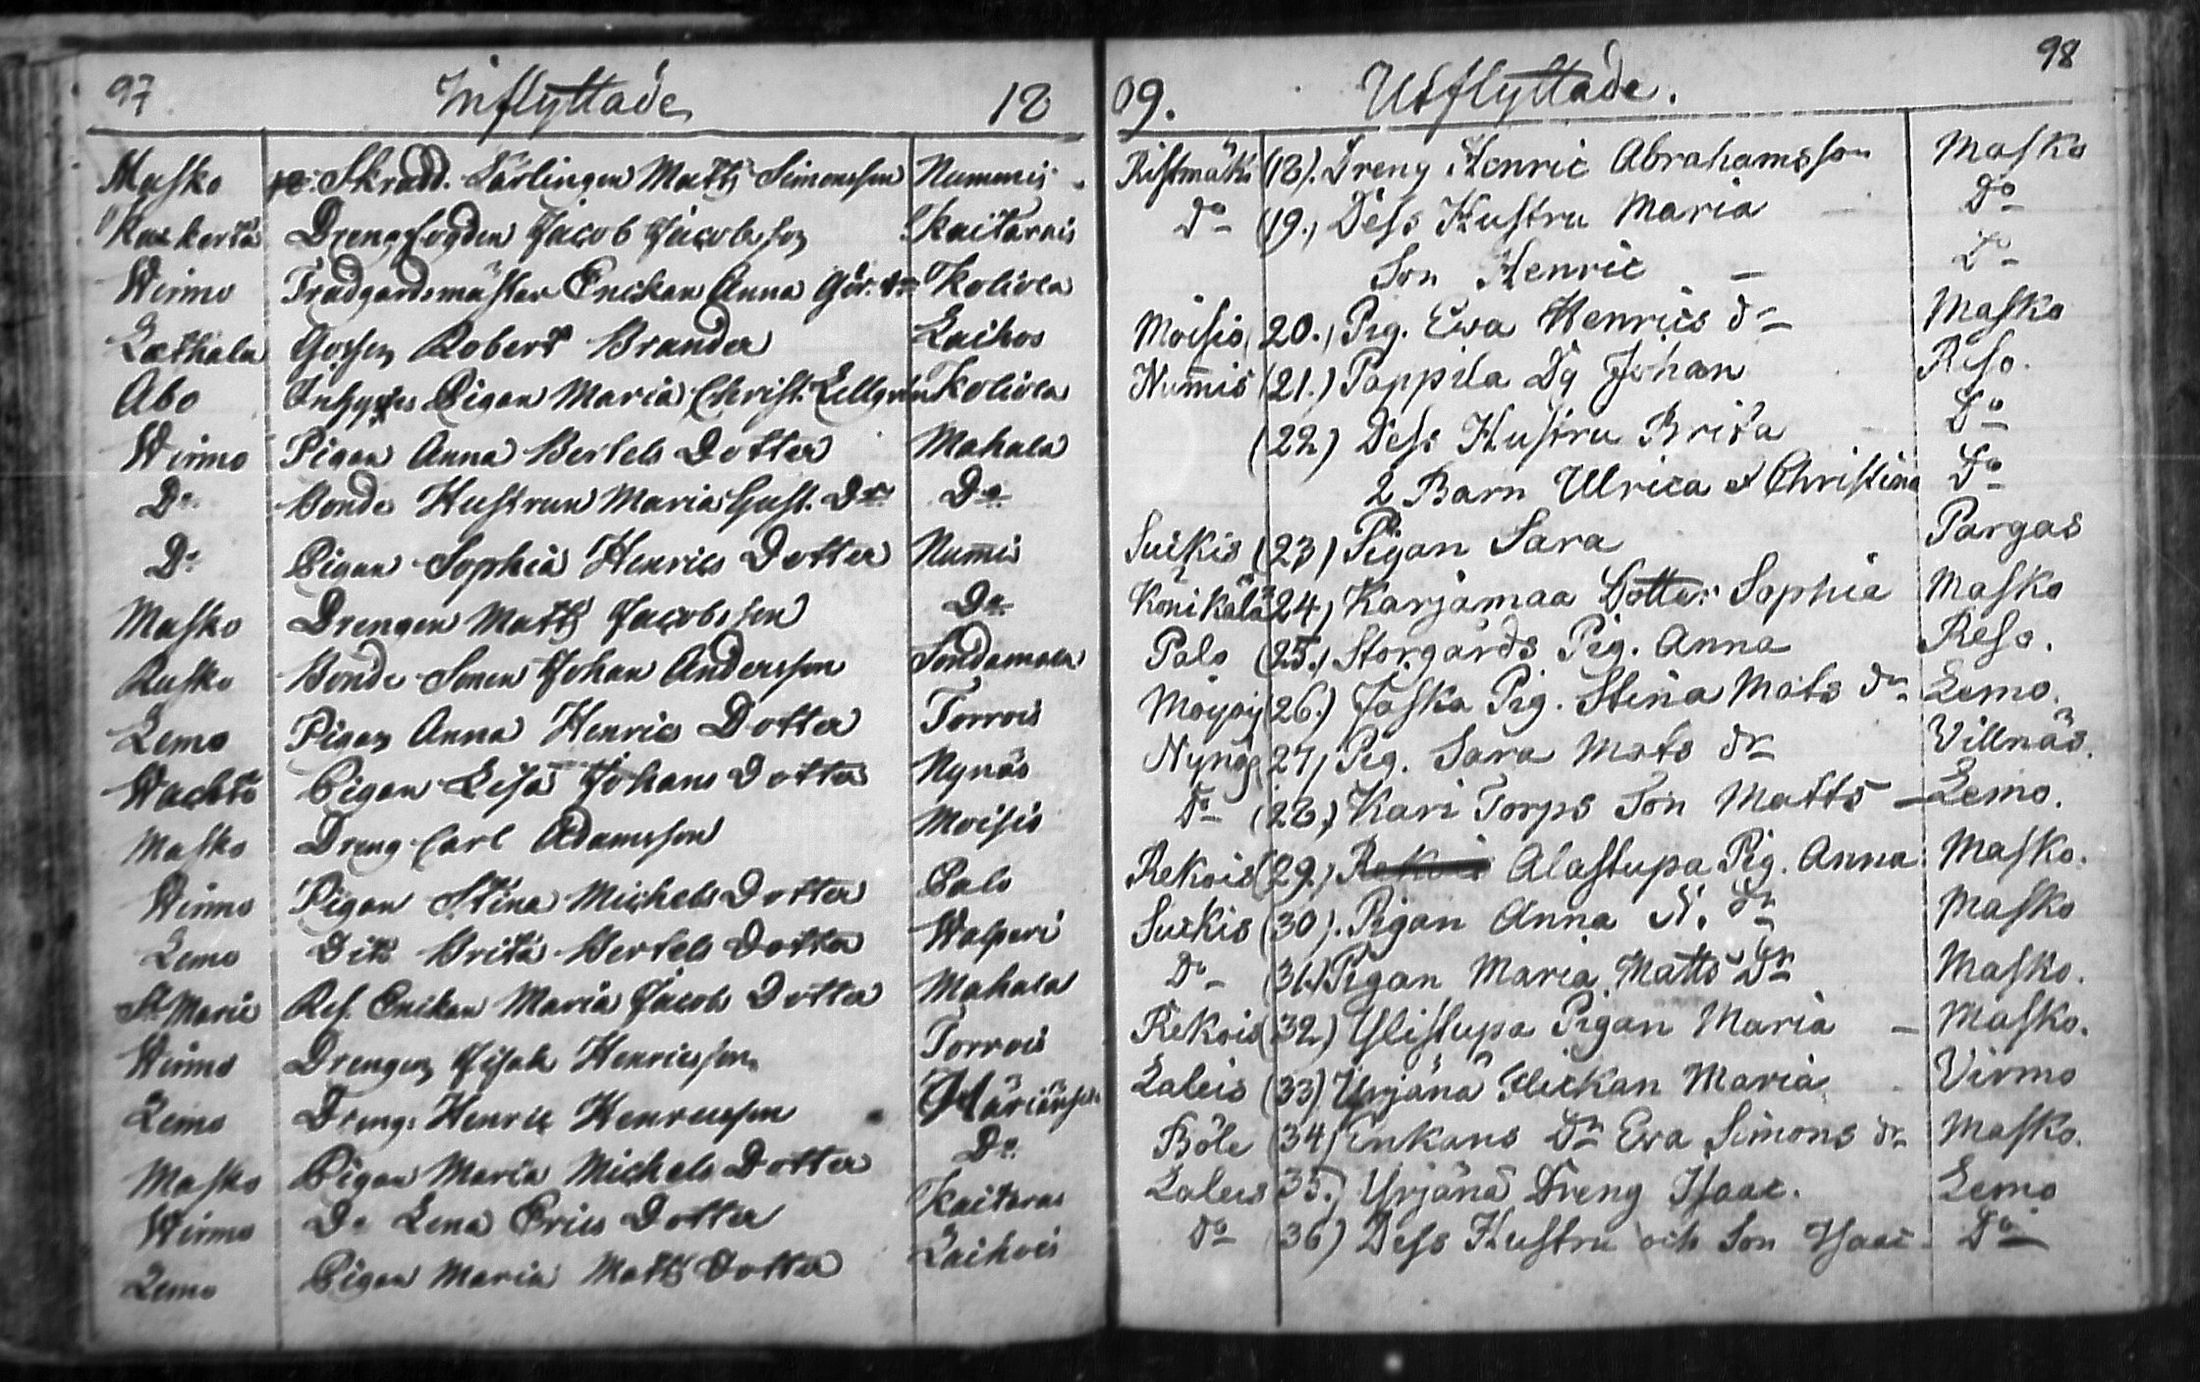 97 Inflyttade 18
Masko Skrädd. Lärlingen Matts Simonsson Nummis
Drengfogden Jacob Jacobsson Kaitarais
Wirmo Trädgårdsmästar Enckan Anna Kolivla
Robert Brander Laihos
Åbo Pigan Maria Christ. Kolivla
Wirmo Pigan Anna Bertels Dotter Mahala
Do Bonde Hustrun Maria Gust. Dr Do
Do Pigan Sophia Henrics Dotter Num̅is
Masko Drengen Matts Jacobsson Do
Rusko Bonde Sonen Johan Andersson
Lemo Pigan Anna Henrics Dotter Torrois
Pigan Lisa Johans Dotter Nynäs
Masko Dreng Carl Adamsson Moisio
Wirmo Pigan Stina Michels Dotter Palo
Lemo Dito Brita Bertels Dotter Walperi
St Marie Enckan Maria Jacobs Dotter Mahala
Wirmo Drengen Isak Henricsson Torrois
Lemo Dreng. Henric Henricsson
Masko Pigan Maria Michels Dotter Do
Wirmo Do Lena Erics Dotter Kaitaras
Lemo Pigan Maria Matts Dotter Laihois
09. Utflyttade. 98
Ristmäki (18). Dreng Henric Abrahamsson Masko
Do (19.) Dess Hustru Maria Do
Son Henric Do
Moisio (20.) Pig. Ewa Henrics dr Masko
Num̅is (21.) Pappila Dg Johan Reso.
(22) Dess Hustru Brita Do
2 Barn Ulrica et Christina Do
Suikis (23) Pigan Sara Pargas
Könikälä (24.) Karjamaa Dotter Sophia Masko
Palo (25.) Storgårds Pig. Anna Reso.
(26.) Jaska Pig. Stina Mats dr Lemo.
Nynäs (27) Pig. Sara Mats dr Villnäs.
Do (28.) Kari Torps Son Matts Lemo.
Rekois (29.) Alastupa Pig. Anna Masko.
Suikis (30). Pigan Anna N. dr Masko
Do (31.) Pigan Maria Matts Dr Masko.
Rekois (32.) Ylistupa Pigan Maria Masko.
Laleis (33) Yrjänä Flickan Maria Virmo
Böle (34) Enkans Dr Eva Simons dr Masko.
Laleis (35.) Yrjänä Dreng Isaac. Lemo
Do (36) Dess Hustru och Son Isaac Do